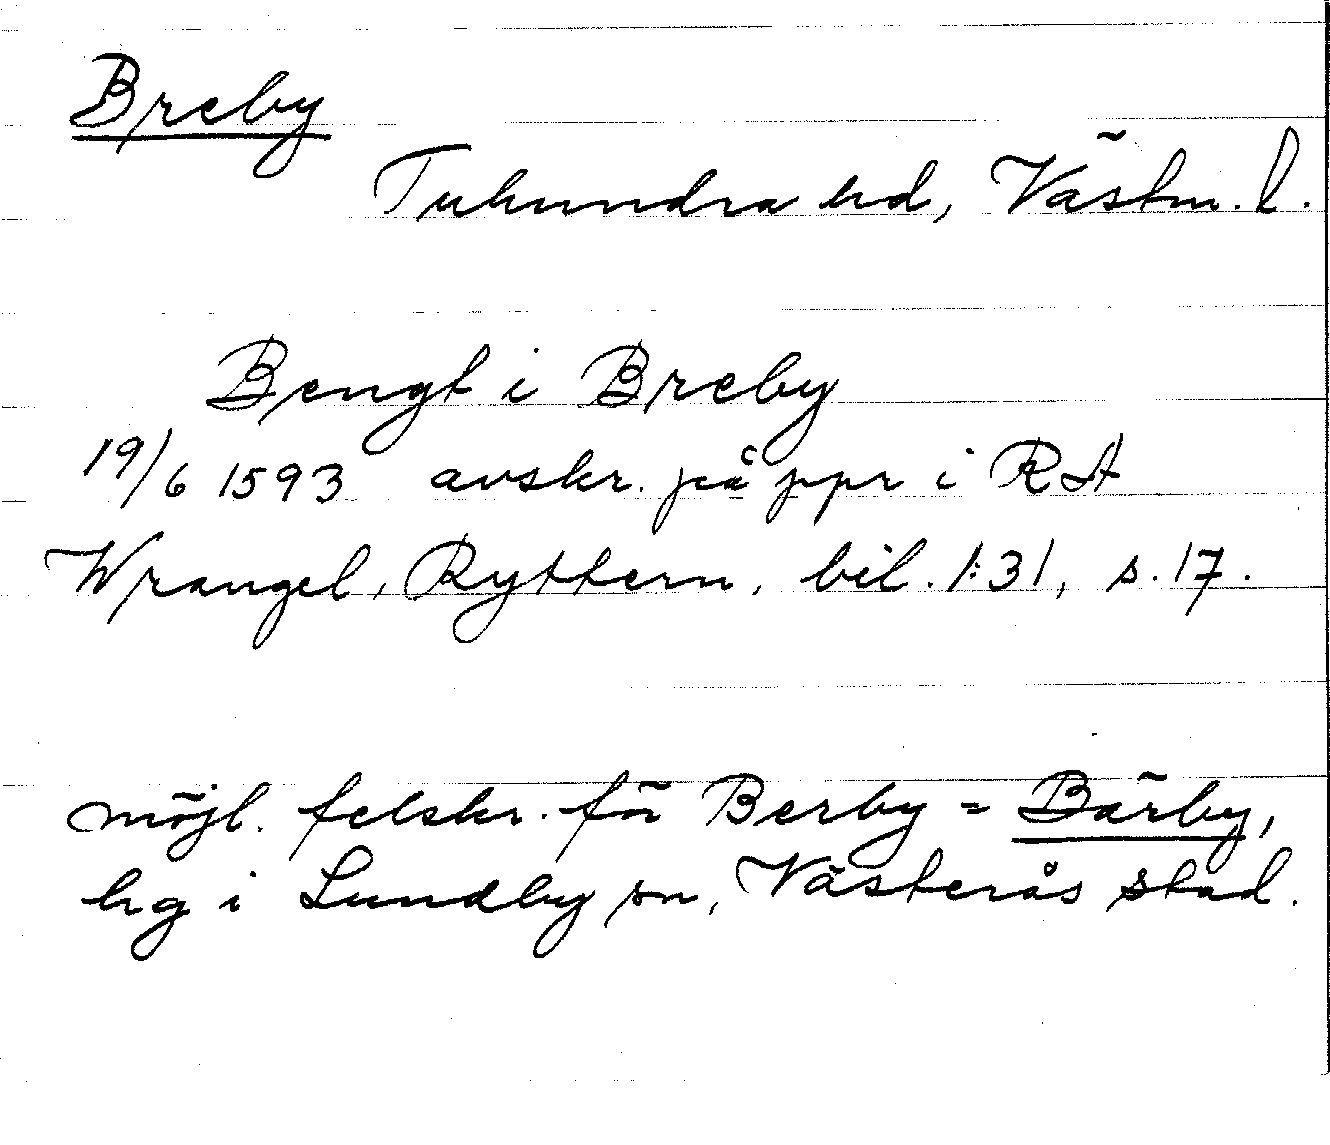 Breby
Tuhundra hd, Västm. l.
Bengt i Breby
19/6 1593 avskr. på ppr i RA
Wrangel, Ryttern, bil. 1:31, s. 17.
möjl. felskr. för Berby = Bärby,
hg i Lundby sn, Västerås stad.